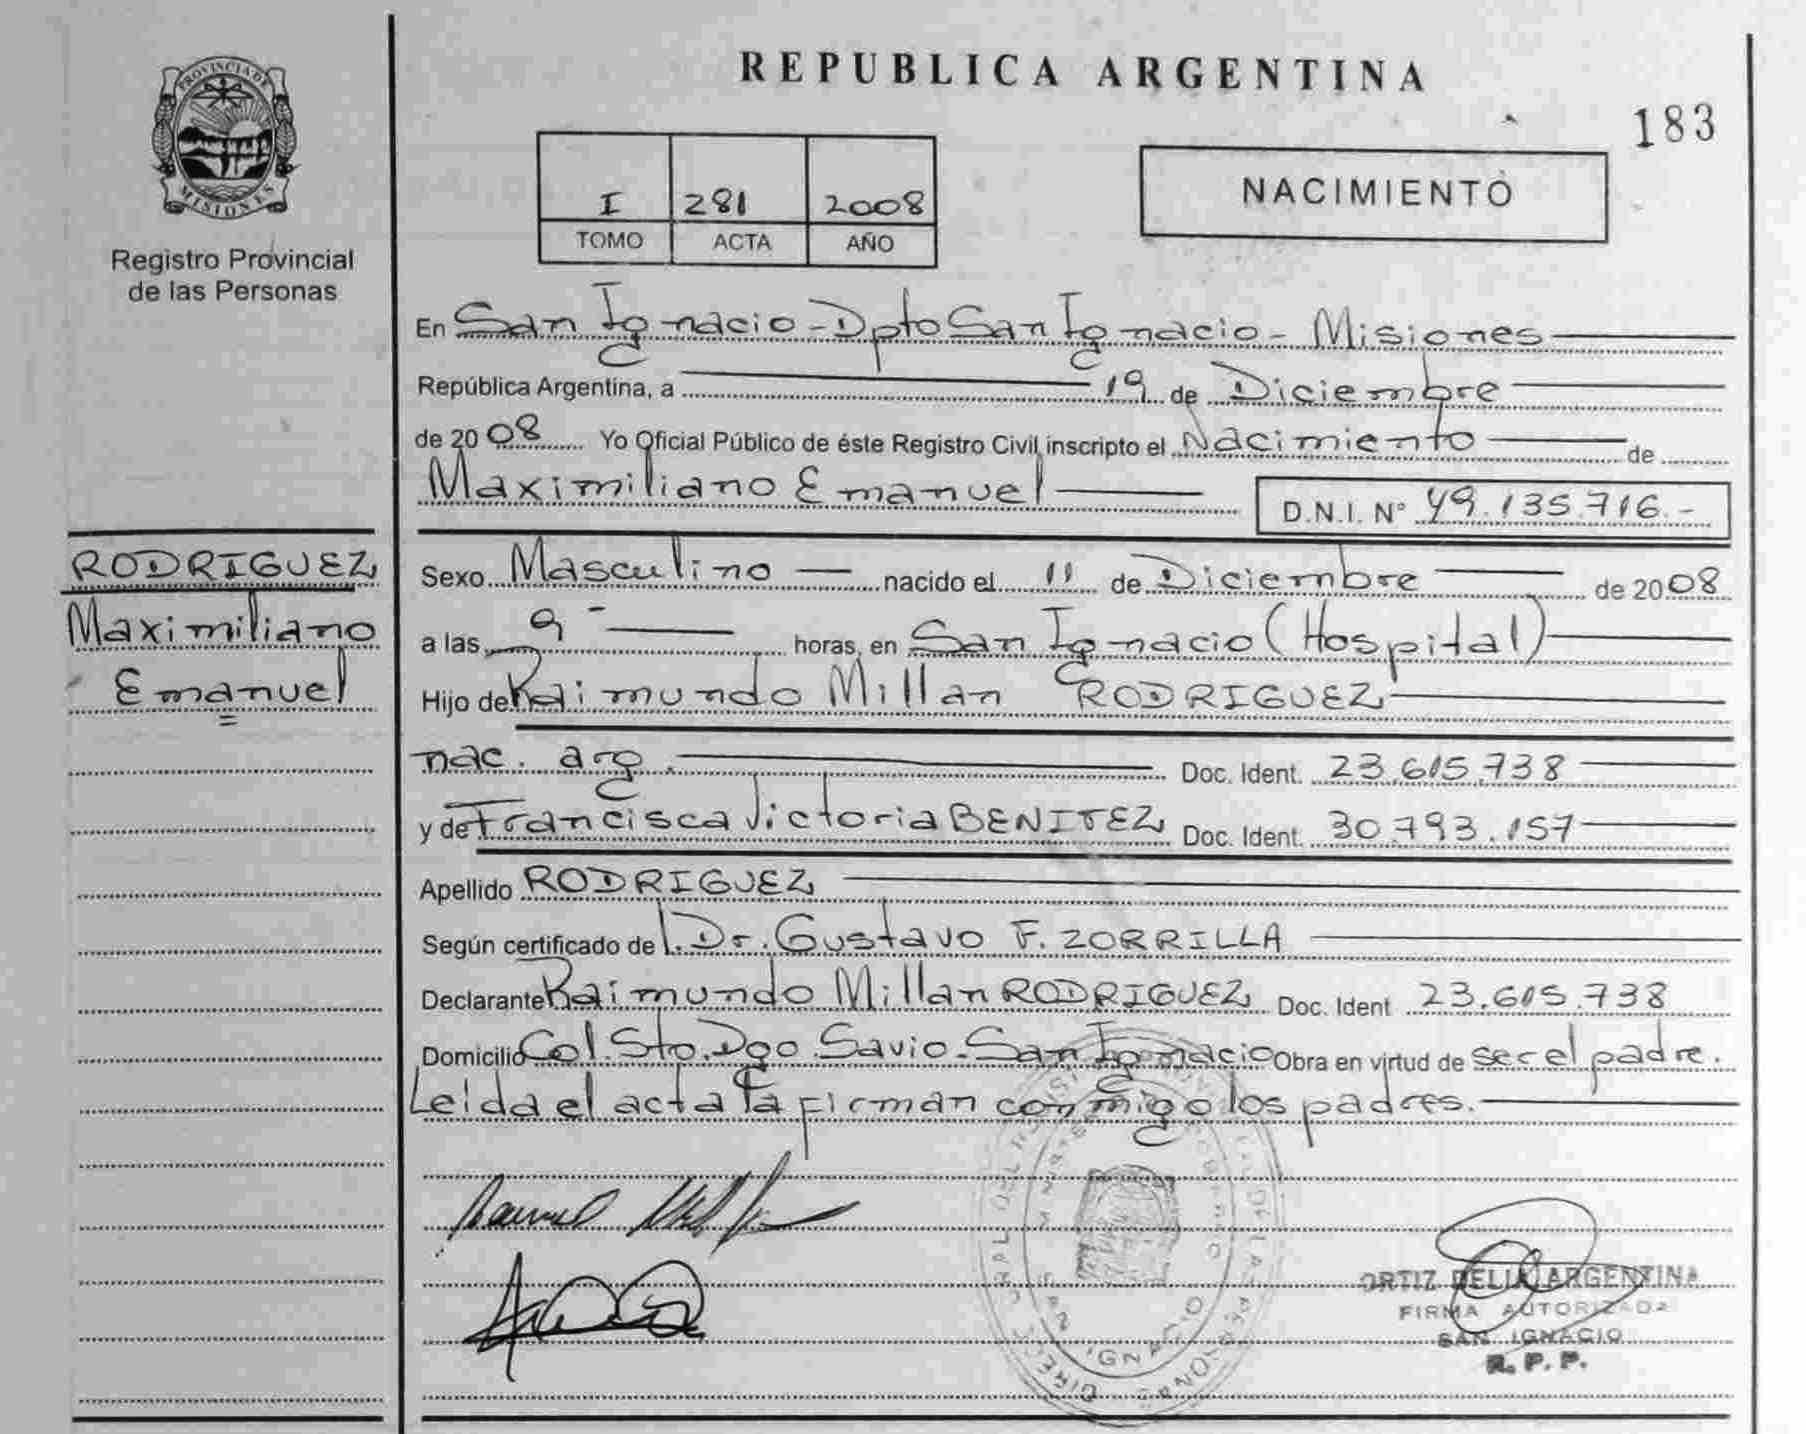 PROVINCIA DE
MISIONES
Registro Provincial
de las Personas
REPUBLICA ARGENTINA
183
I 281 2008
TOMO ACTA AÑO
NACIMIENTO
En San Ignacio - Dpto San Ignacio - Misiones
República Argentina, a 19 de Diciembre
de 2008 Yo Oficial Público de éste Registro Civil inscripto el Nacimiento de
Maximiliano Emanuel D.N.I. N° 49.135.716.-
RODRIGUEZ
Maximiliano
Emanuel
Sexo Masculino nacido el 11 de Diciembre de 2008
a las 9 horas, en San Ignacio (Hospital)
Hijo de Raimundo Millan RODRIGUEZ
nac. arg. Doc. Ident. 23.615.738
y de Francisca Victoria BENITEZ Doc. Ident. 30.793.157
Apellido RODRIGUEZ
Según certificado del Dr. Gustavo F. ZORRILLA
Declarante Raimundo Millan RODRIGUEZ Doc. Ident 23.615.738
Domicilio Col. Sto. Dgo. Savio - San Ignacio Obra en virtud de ser el padre.
Leida el acta la firman conmigo los padres.
ORTIZ DELIA ARGENTINA
FIRMA AUTORIZADA
SAN IGNACIO
R. P. P.